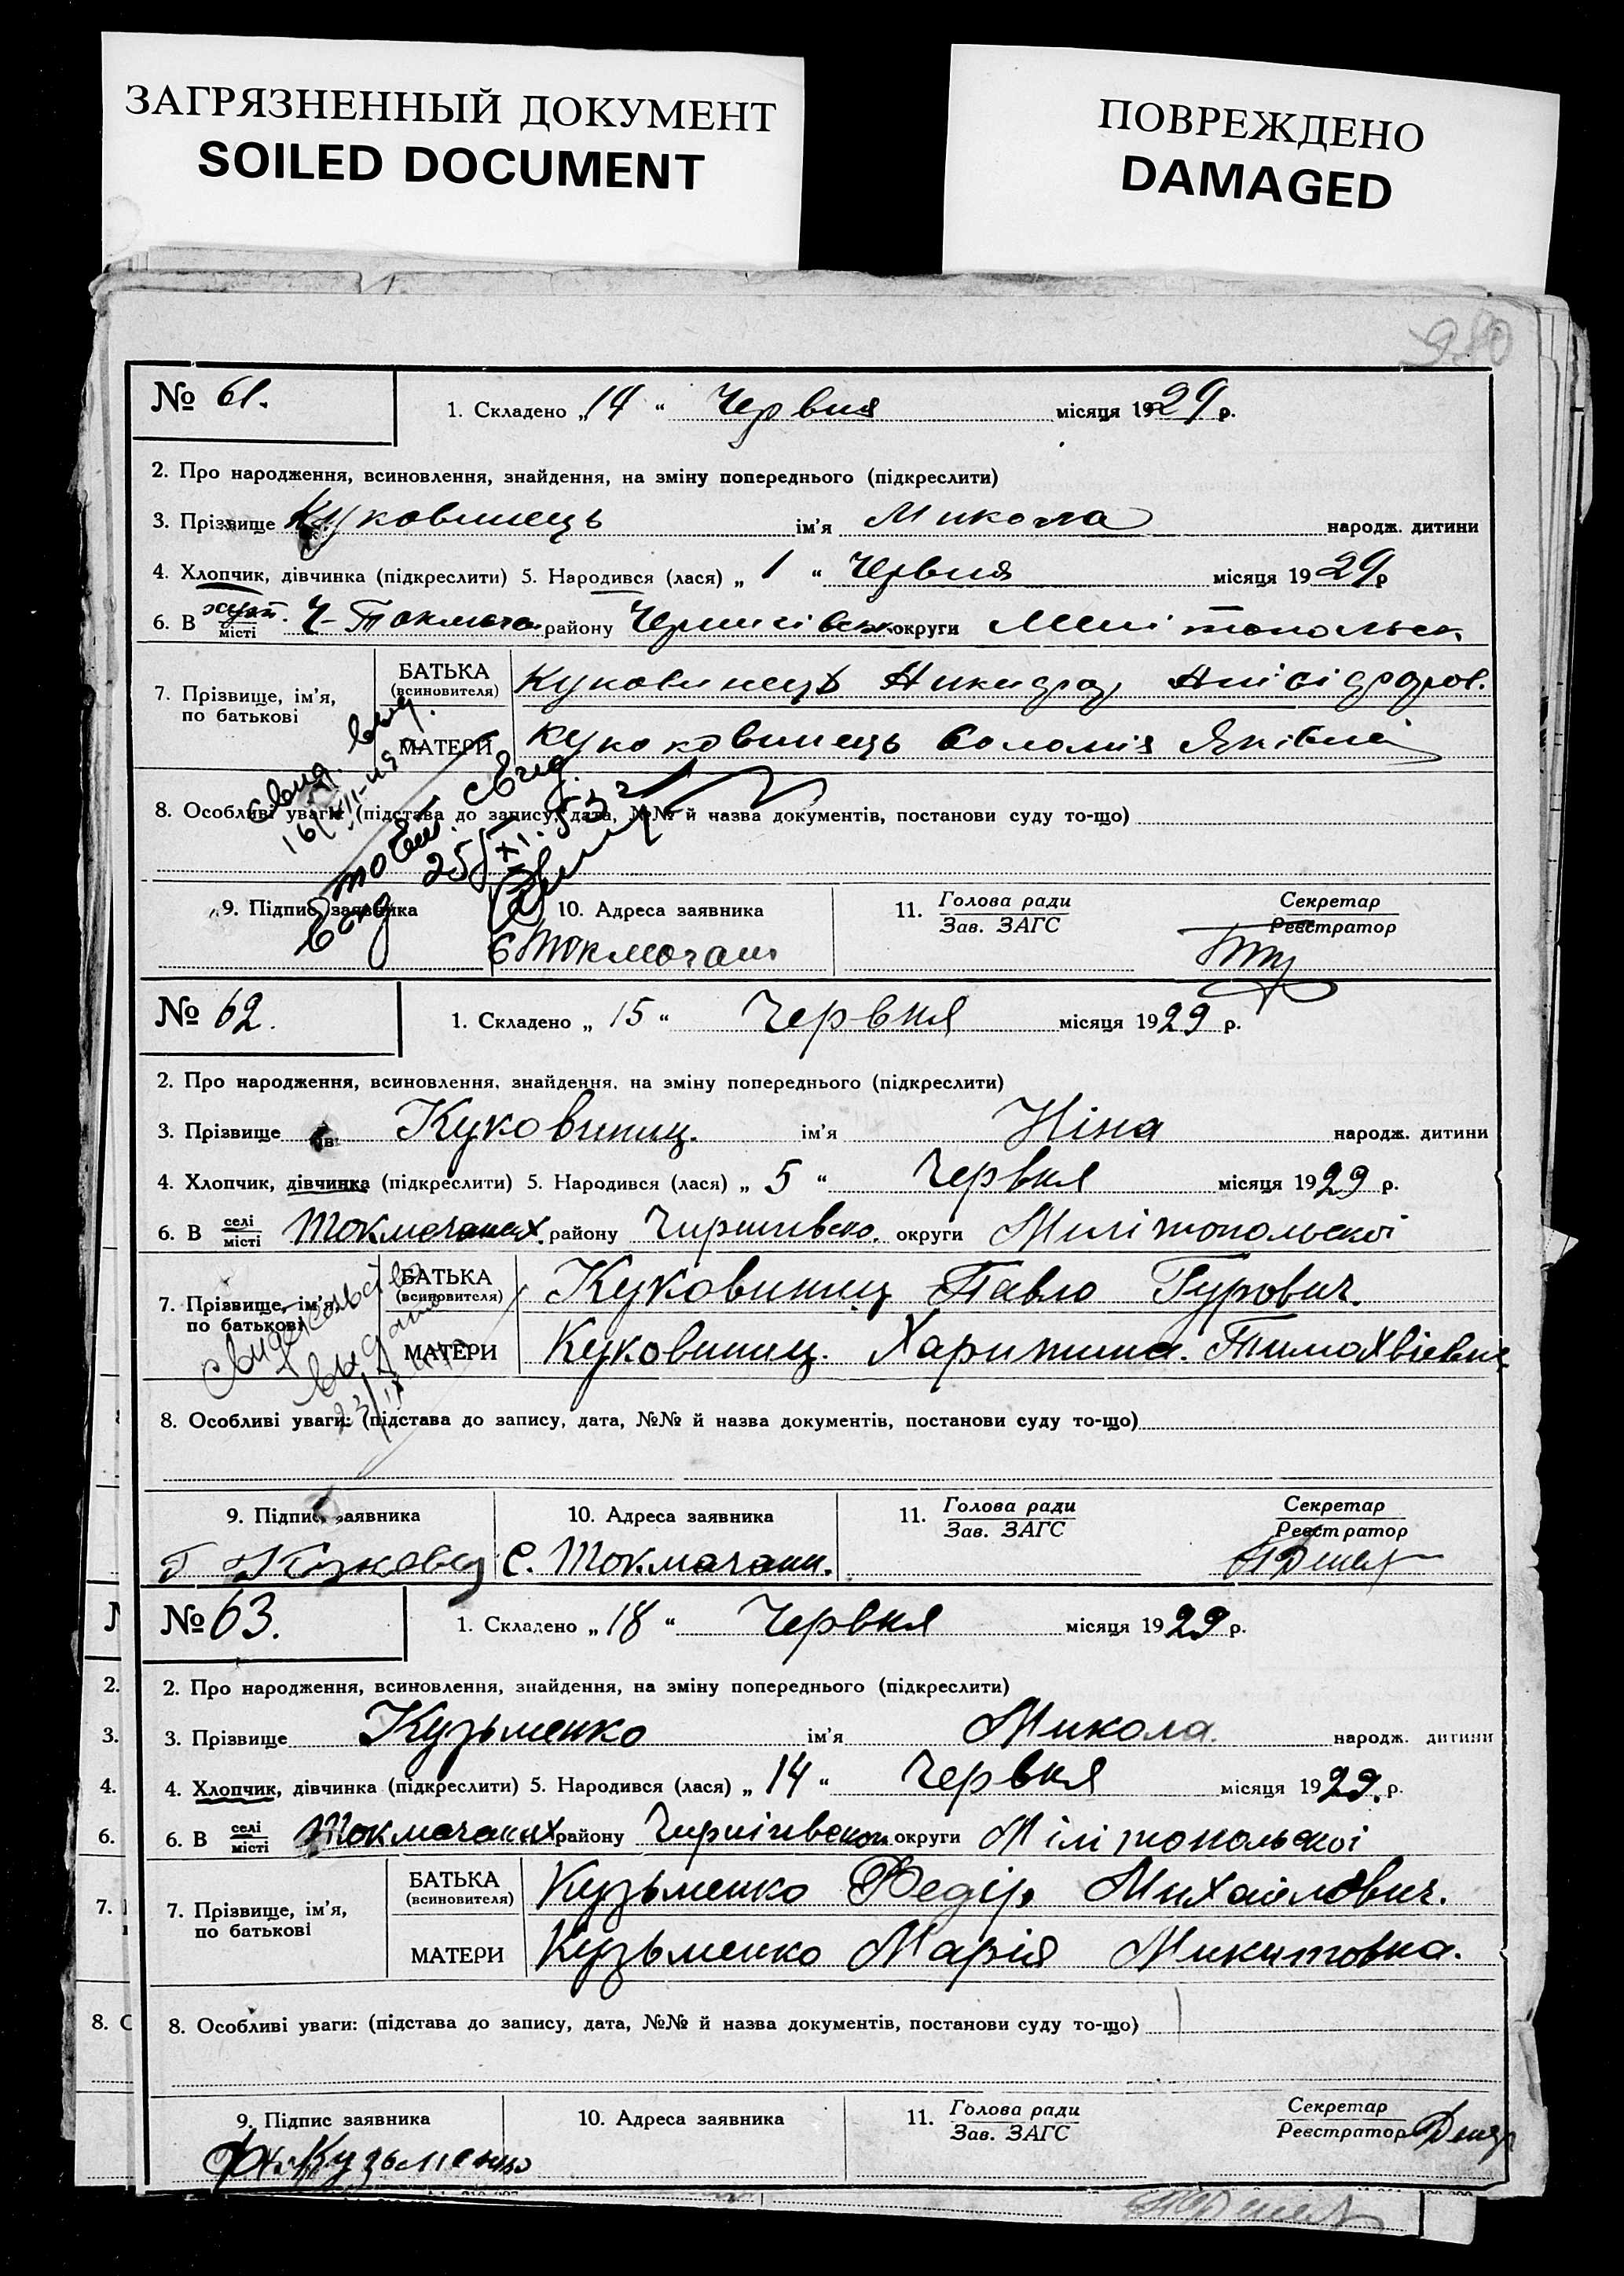 ЗАГРЯЗНЕННЫЙ ДОКУМЕНТ
SOILED DOCUMENT
ПОВРЕЖДЕНО
DAMAGED
№ 61.
1. Складено „14“ Червня місяця 1929 р.
2. Про народження, всиновлення, знайдення, на зміну попереднього (підкреслити)
3. Прізвище Куковинець ім'я Микола народж. дитини
4. Хлопчик, дівчинка (підкреслити) 5. Народився (лася) „1“ Червня місяця 1929 р
6. В хут. місті району округи
7. Прізвище, ім'я, по батькові
БАТЬКА (всиновителя) Куковинець
МАТЕРИ Соломія Яківна
свид. выд.
повт. свид.
8. Особливі уваги: (підстава до запису, дата, №№ й назва документів, постанови суду то-що)
9. Підпис заявника
10. Адреса заявника
11. Голова ради
Зав. ЗАГС
Секретар
Реєстратор
№ 62.
1. Складено „15“ Червня місяця 1929 р.
2. Про народження, всиновлення, знайдення, на зміну попереднього (підкреслити)
3. Прізвище Куковинец. ім'я Ніна народж. дитини
4. Хлопчик, дівчинка (підкреслити) 5. Народився (лася) „5“ Червня місяця 1929 р.
6. В селі місті Токмачанах району округи Милітопольскоі
7. Прізвище, ім'я, по батькові
БАТЬКА (всиновителя) Куковинец Павло Гурович.
МАТЕРИ Куковинец. Харитина.
8. Особливі уваги: (підстава до запису, дата, №№ й назва документів, постанови суду то-що)
9. Підпис заявника
10. Адреса заявника
11. Голова ради
Зав. ЗАГС
Секретар
Реєстратор
с. Токмачани.
№ 63.
1. Складено „18“ Червня місяця 1929 р.
2. Про народження, всиновлення, знайдення, на зміну попереднього (підкреслити)
3. Прізвище Кузьменко ім'я Микола. народж. дитини
4. Хлопчик, дівчинка (підкреслити) 5. Народився (лася) „14“ Червня місяця 1929. р.
6. В селі місті Токмачаках району округи Мілітопольскоі
7. Прізвище, ім'я, по батькові
БАТЬКА (всиновителя) Кузьменко Федір Михайлович.
МАТЕРИ Кузьменко Марія Микитовна.
8. Особливі уваги: (підстава до запису, дата, №№ й назва документів, постанови суду то-що)
9. Підпис заявника
10. Адреса заявника
11. Голова ради
Зав. ЗАГС
Секретар
Реєстратор
Кузьменко